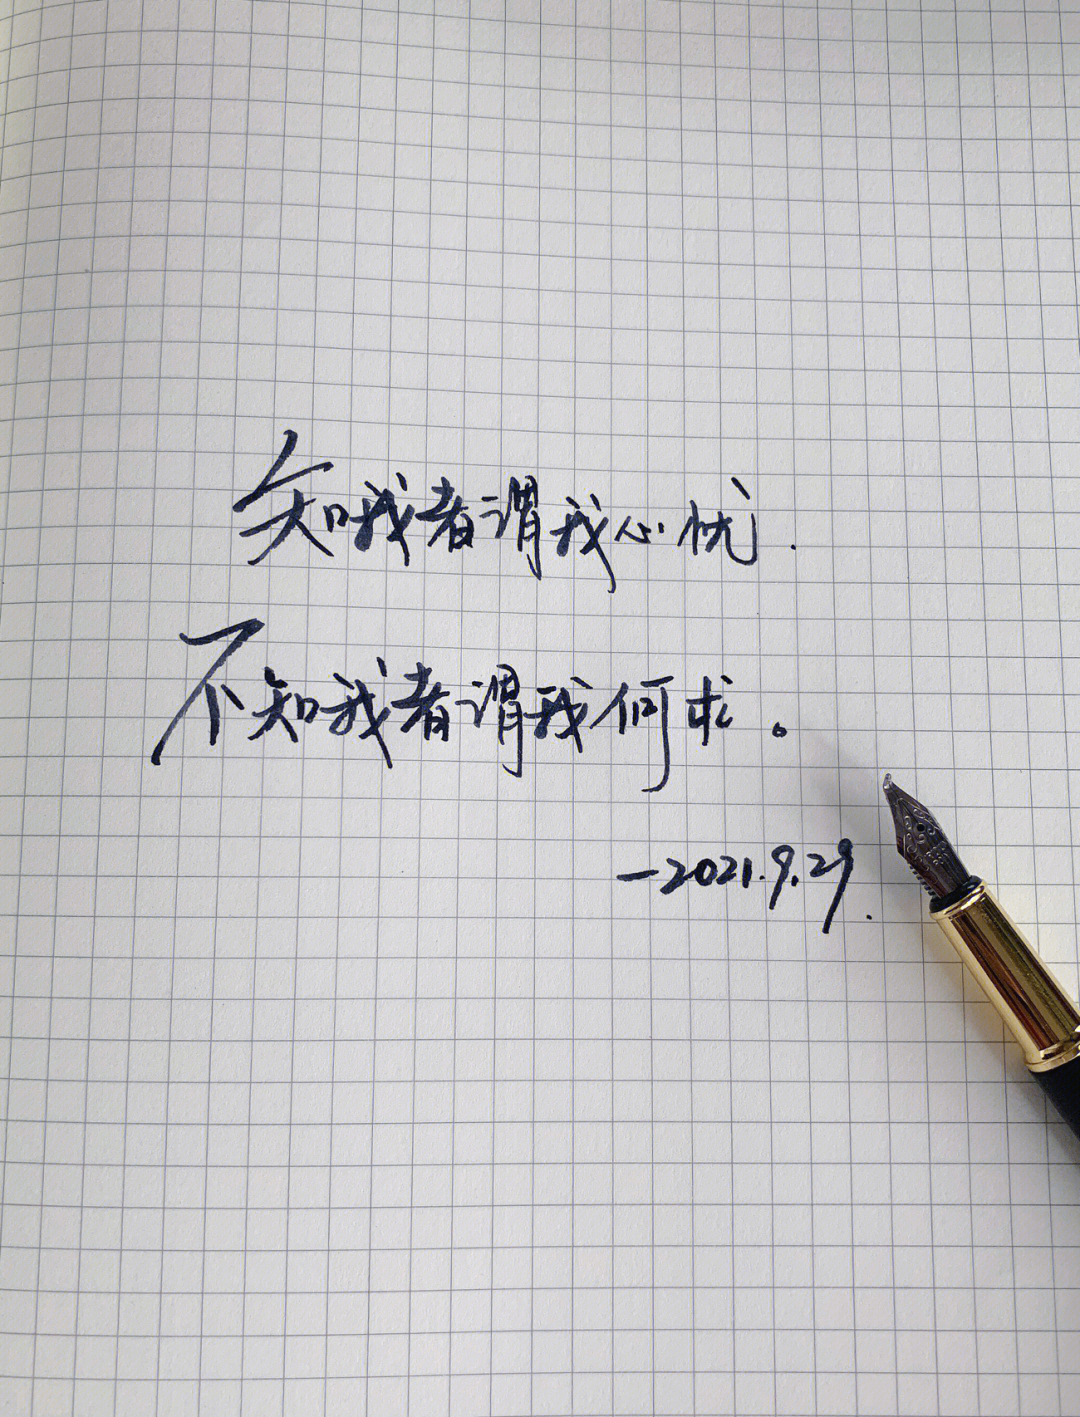 知我者谓我心忧.
不知我者谓我何求。
—2021.9.29.